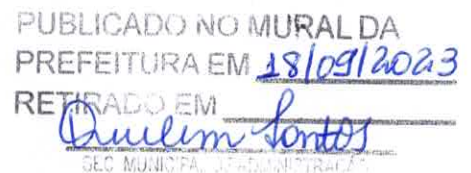 PUBLICADO NO MURAL DA
PREFEITURA EM 18/09/2023
RETIRADO EM
Santos
SEC MUNICIPAL DE ADMINISTRAÇÃO